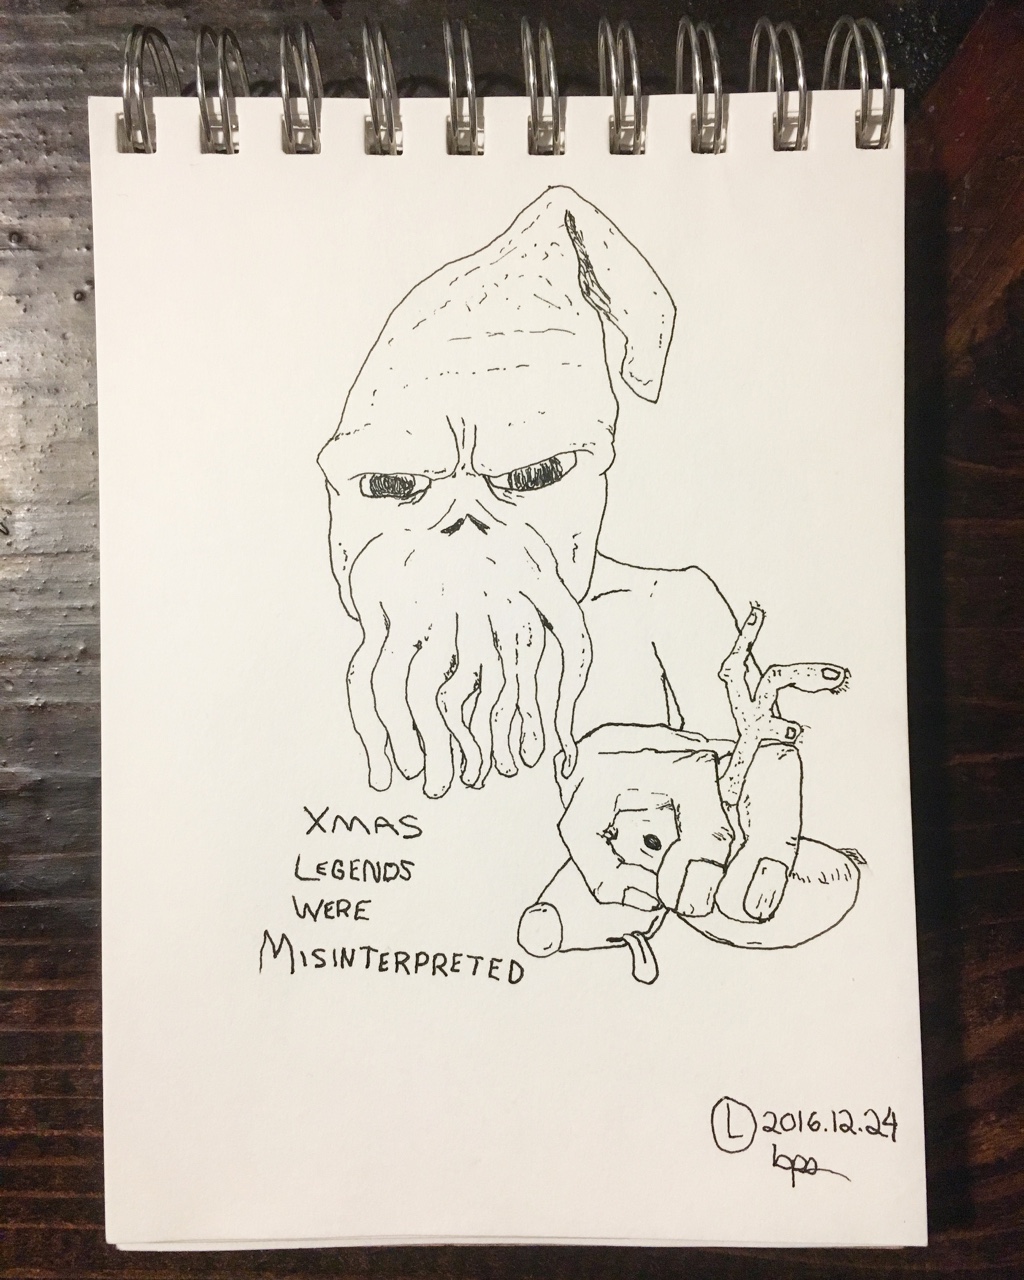 XMAS
LEGENDS
WERE
MISINTERPRETED
Ⓛ 2016.12.24
bps